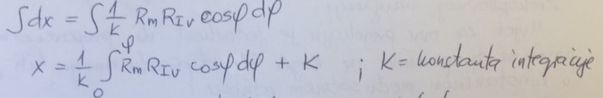 ∫dx = ∫ 1/k Rm RIv cosφ dφ
x = 1/k ∫₀^φ Rm RIv cosφ dφ + K ; K = konstanta integracije